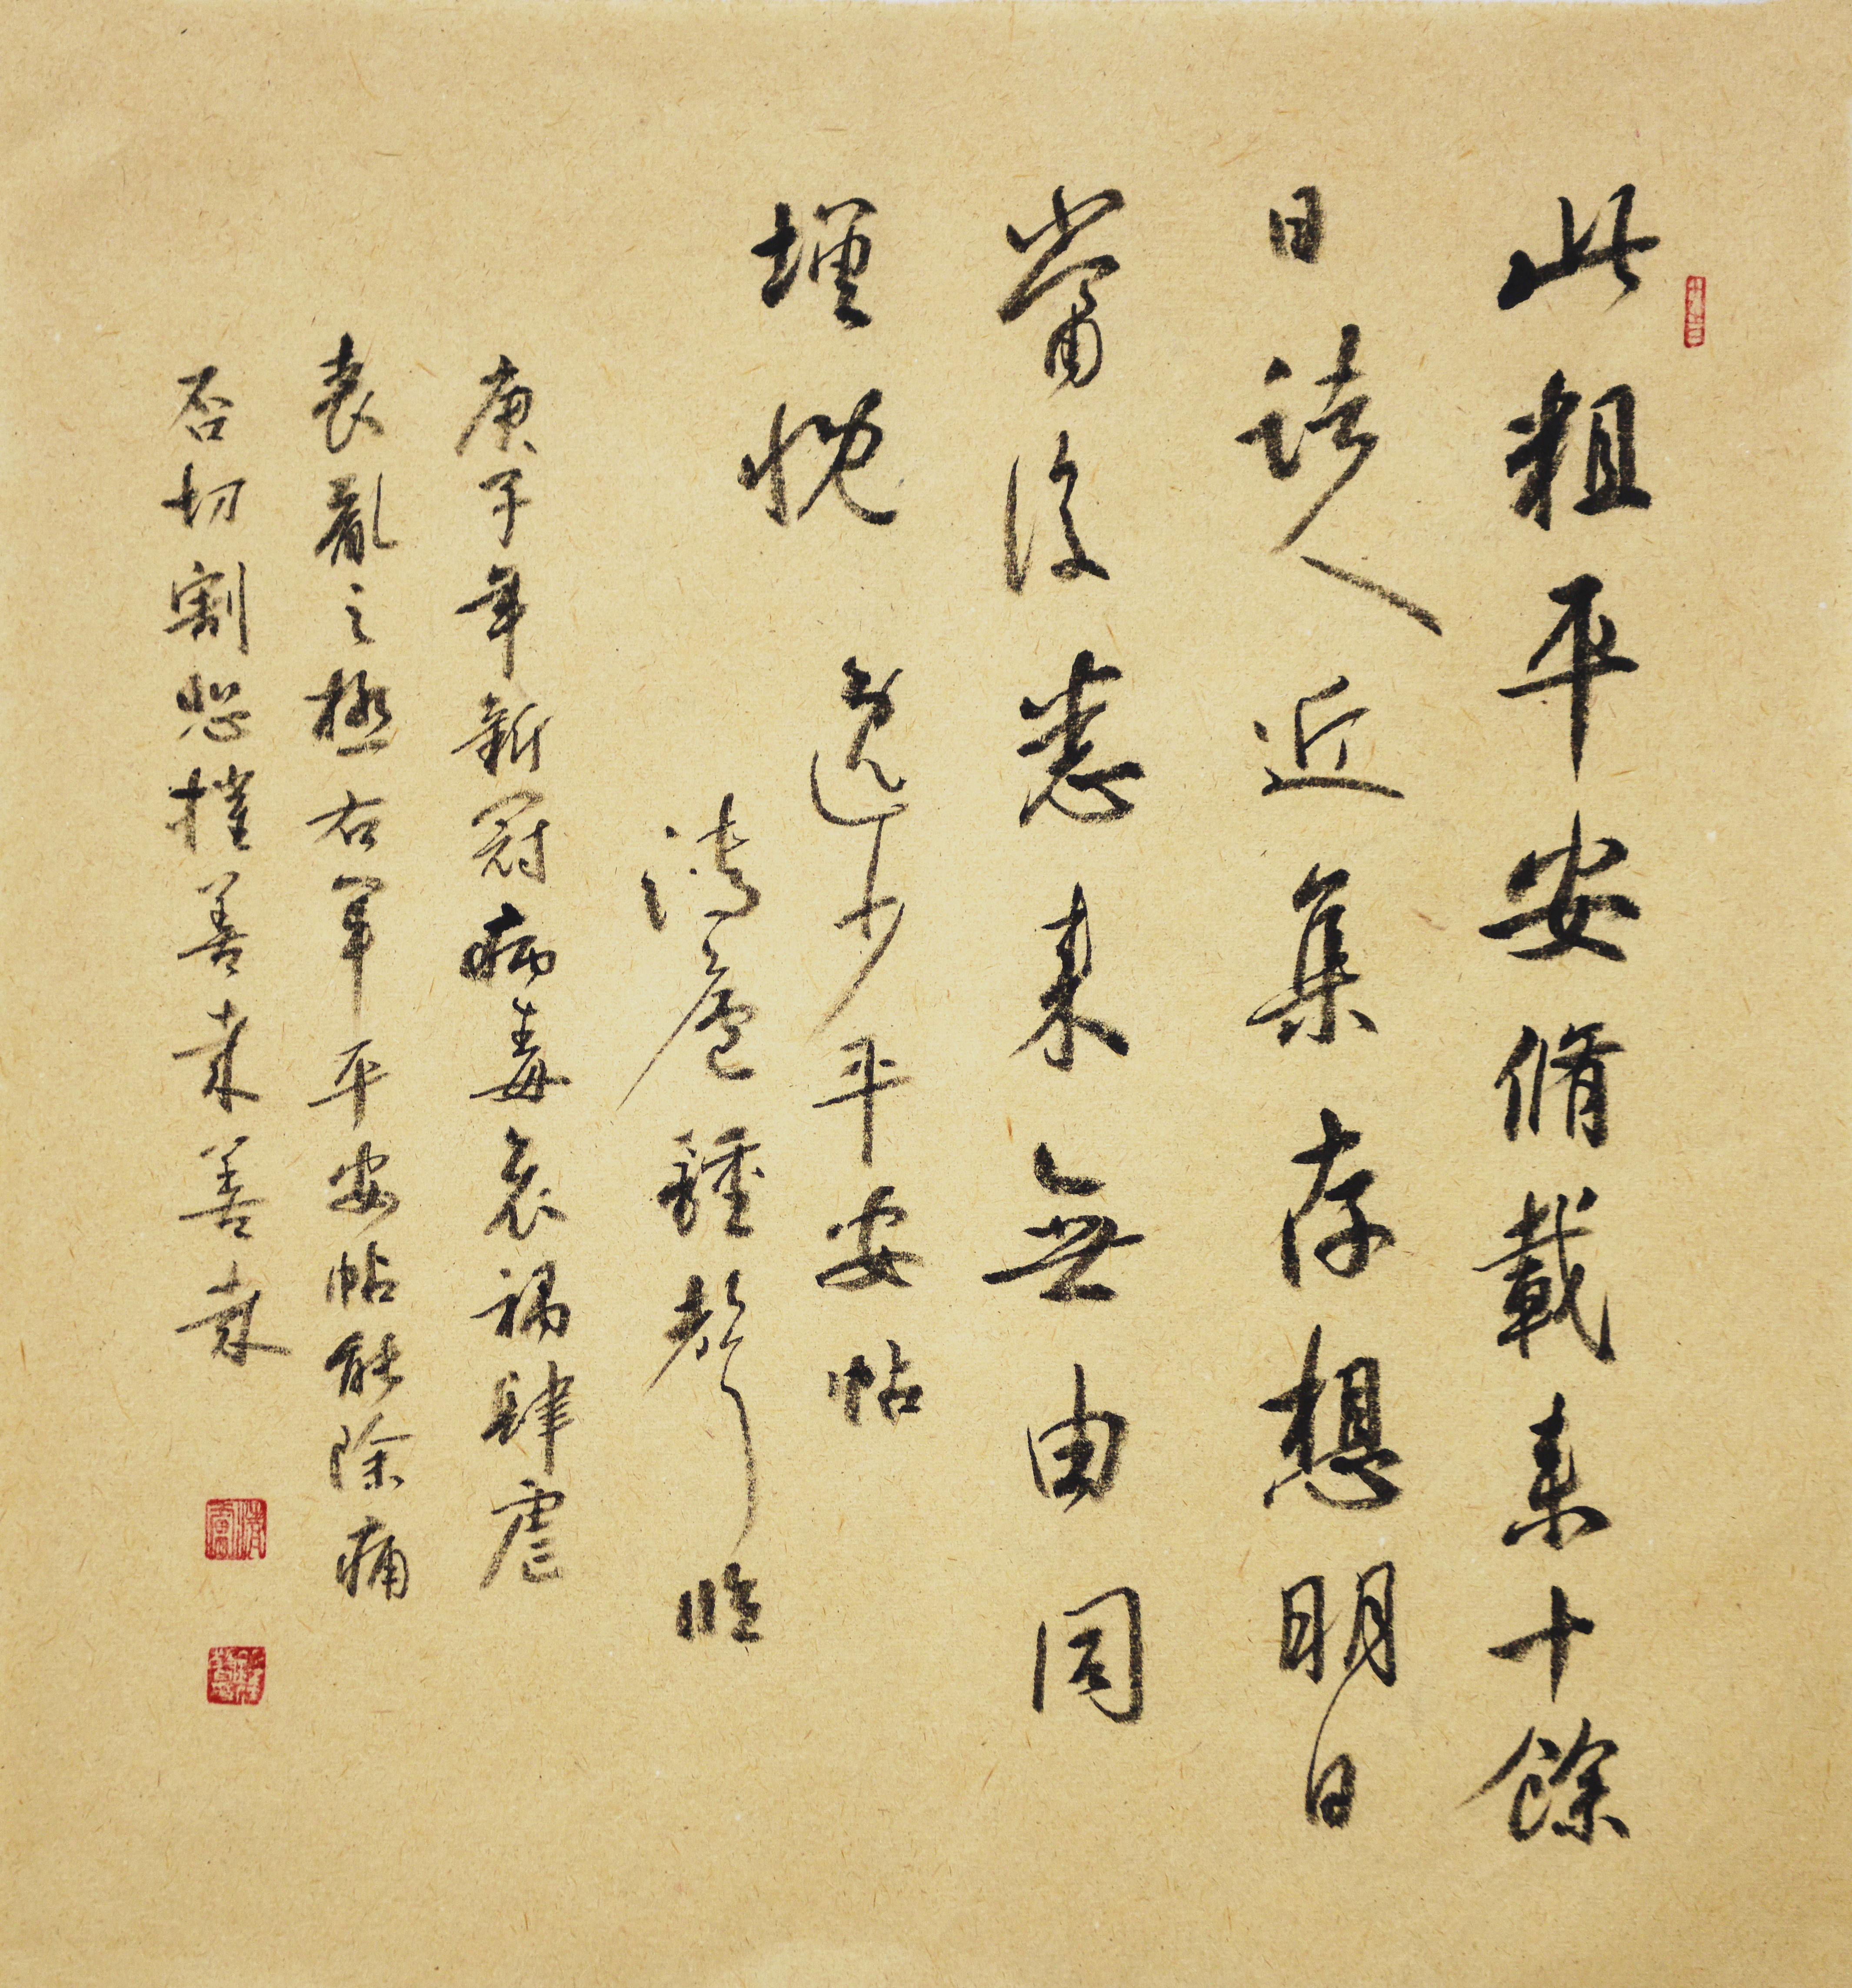 此粗平安脩載來十餘
日諸人近集存想明日
當復悉來無由同
增慨 逸少平安帖
清鍾聲臨
庚子年新冠病毒哀禍肆虐
喪亂之極右軍平安帖能除痛
否切割摧善哉善哉